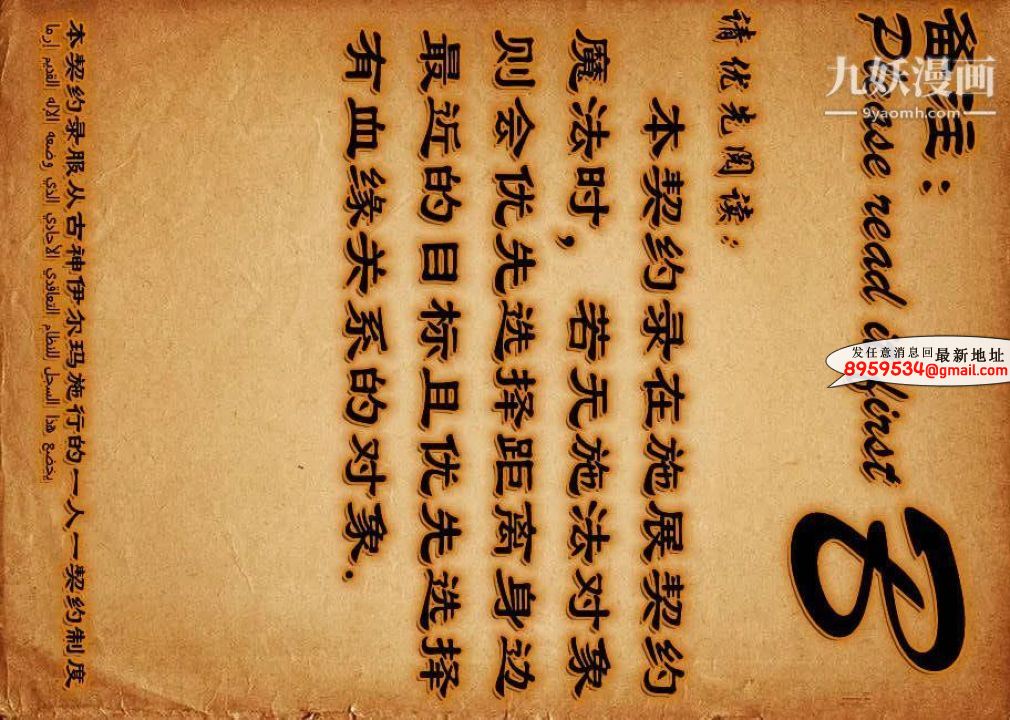 备注：
Please read it first
8
请优先阅读：
本契约录在施展契约
魔法时，若无施法对象
则会优先选择距离身边
最近的目标且优先选择
有血缘关系的对象.
本契约录服从古神伊尔玛施行的一人一契约制度
يخضع هذا السجل للنظام التعاقدي الأحادي الذي وضعه الإله القديم إرما
九妖漫画
9yaomh.com
发任意消息回最新地址
8959534@gmail.com